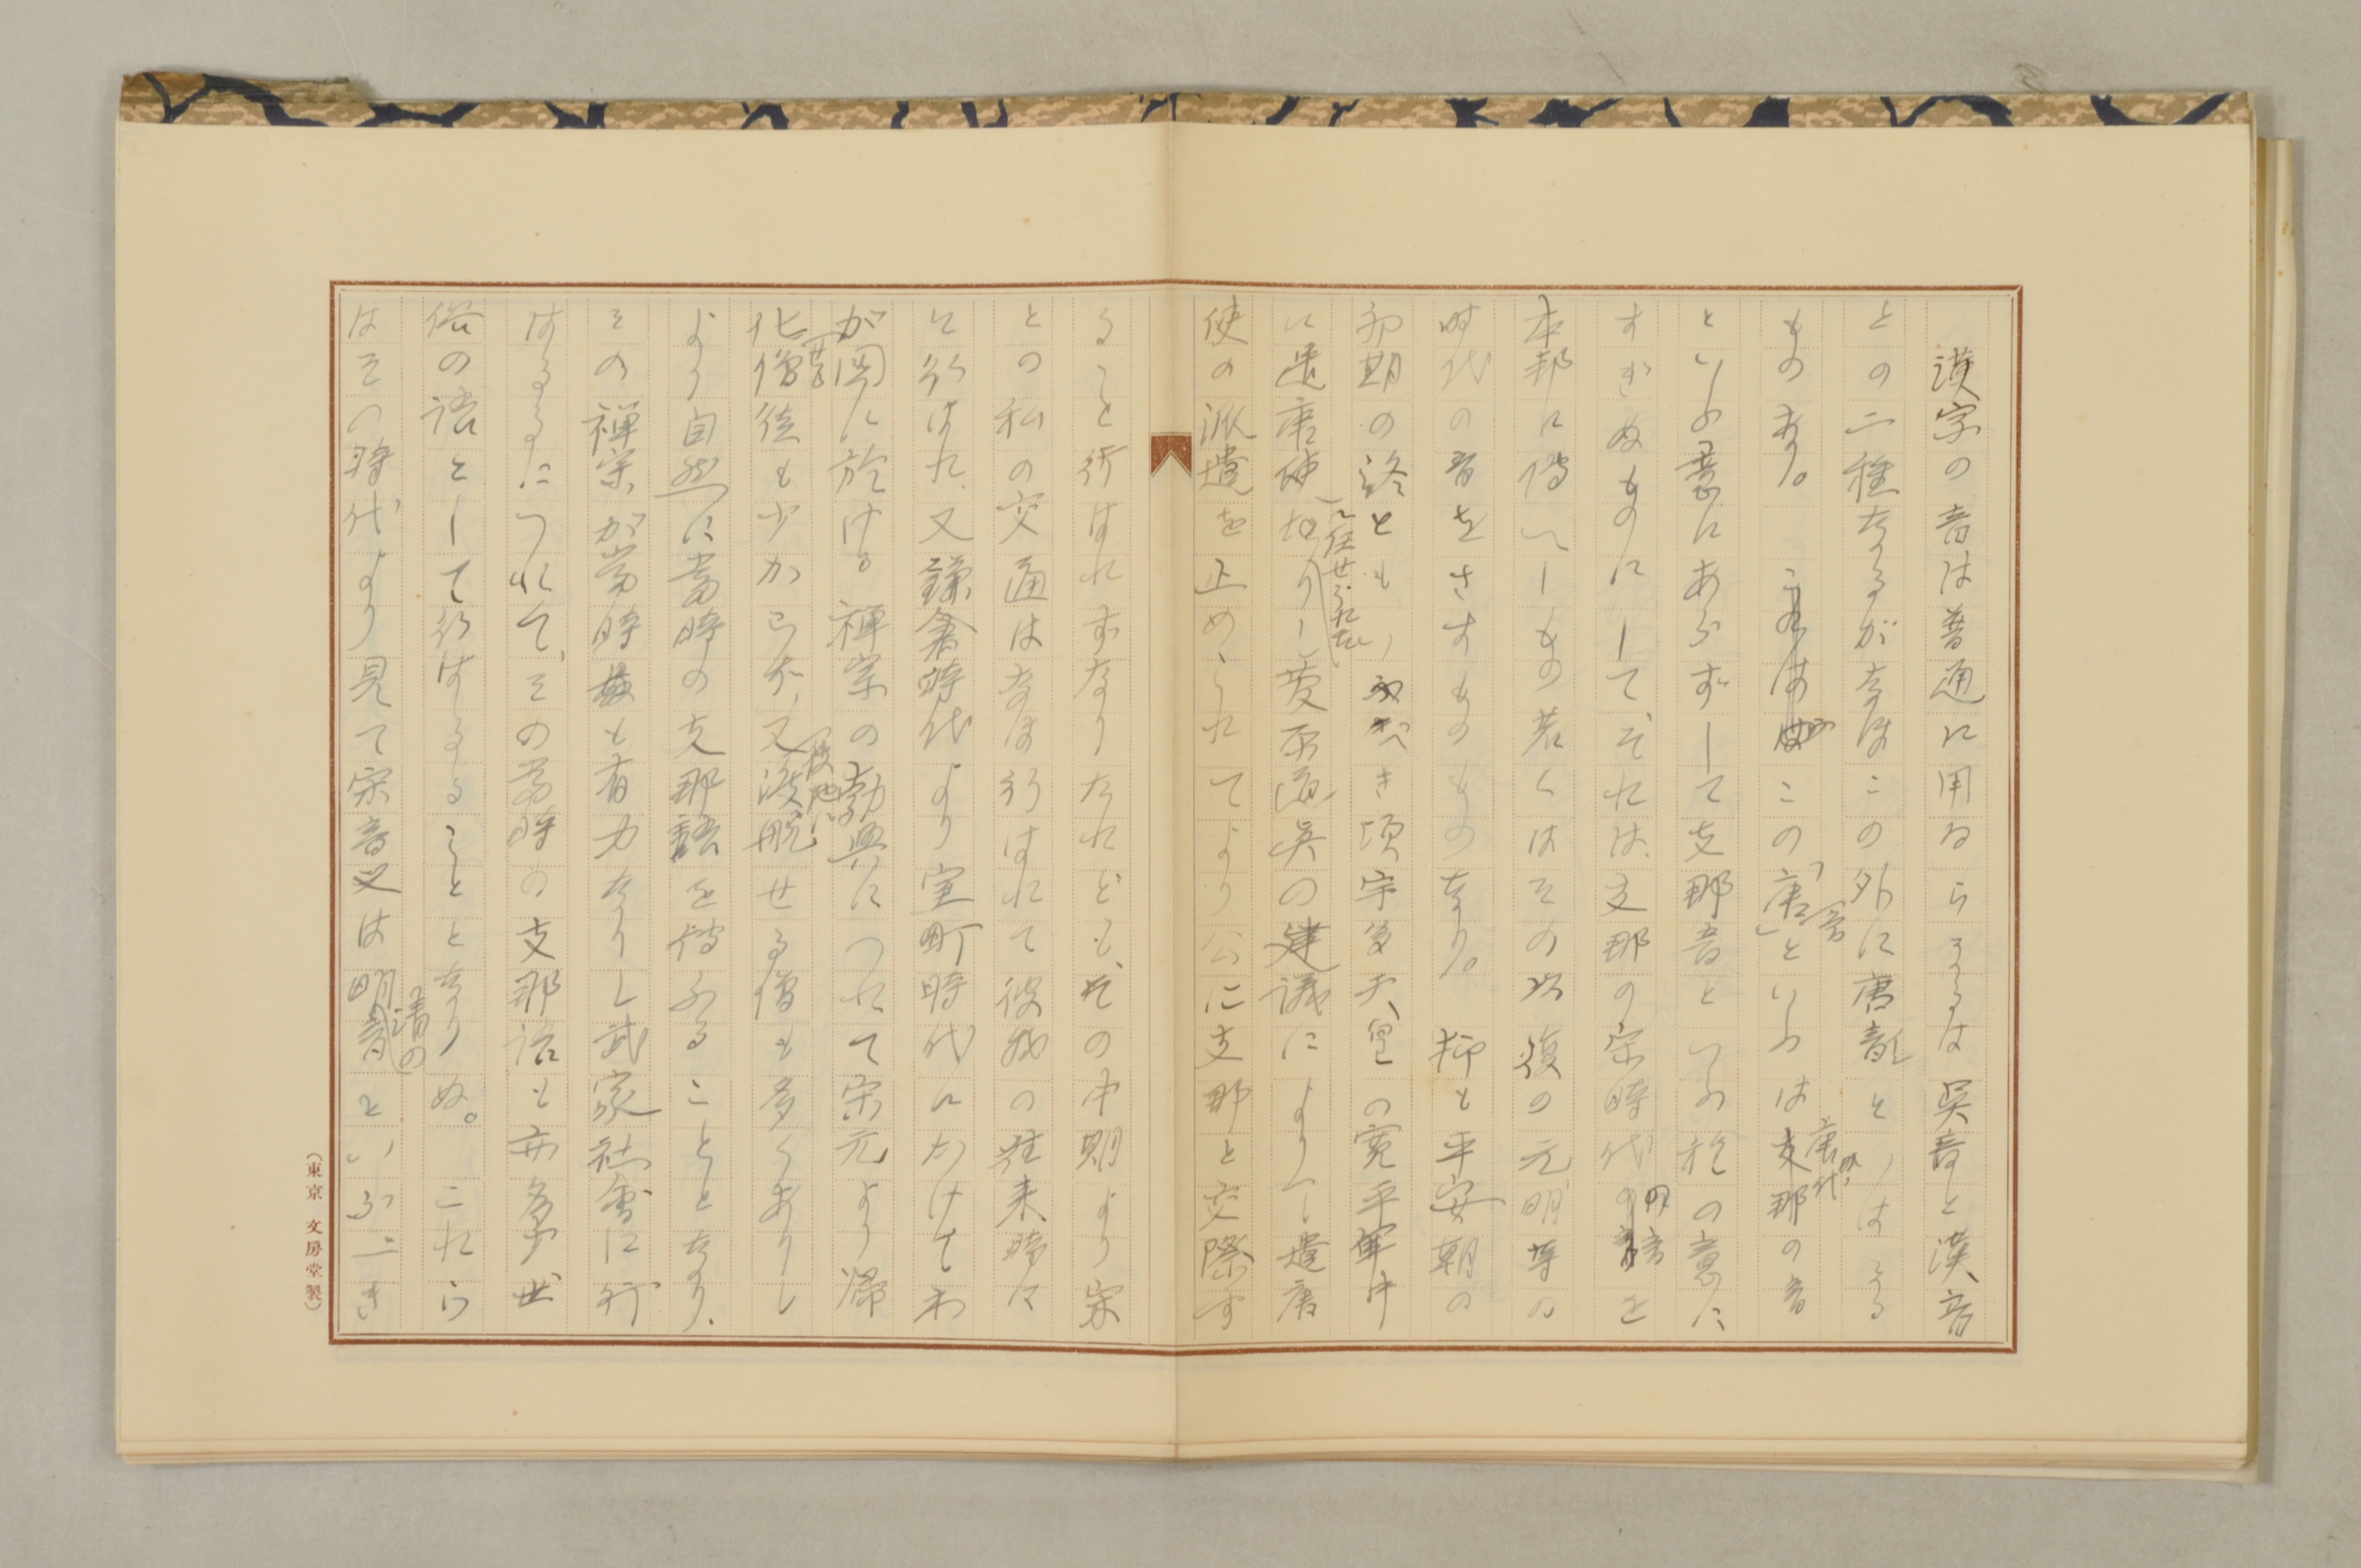 漢字の音は普通に用ゐらるゝは呉音と漢音
との二種なるがなほこの外に唐音といはるる
ものあり。この「唐音」といふは唐代の音
といふ意にあらずして支那音といふ程の意に
すぎぬものにして、それは、支那の宋時代の音を
本邦に傳へしもの若くはその以後の元明等の
時代の音をさすものなり。抑も平安朝の
初期の終ともいふべき頃宇多天皇の寛平年中
に遣唐使に任せられたりし菅原道眞の建議によりて遣唐
使の派遣を止められてより公に支那と交際す
ること行はれずなりたれども、その中期より宋
との私の交通はなほ行はれて彼我の往来時々
に行はれ、又鎌倉時代より室町時代にかけてわ
が国に於ける禅宗の勃興につれて宋元より歸
化せる僧徒も少からず、又彼地に渡航せる僧も多くありし
より自然に當時の支那語を傳ふることとなり、
その禅宗が當時最も有力なりし武家社會に行
はるるにつれて、その當時の支那語も亦多少世
俗の語として行はるることとなりぬ。これら
はその時代より見て宋音又は明清の音といふべき
(東京 文房堂製)